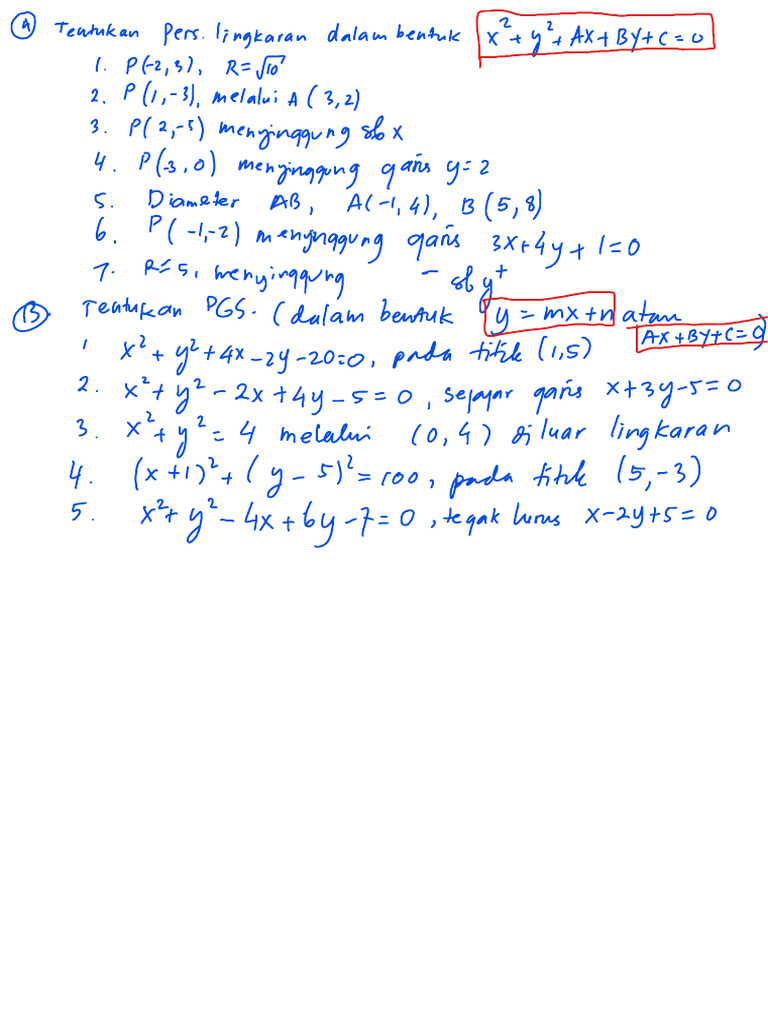 A Tentukan Pers. lingkaran dalam bentuk x² + y² + Ax + By + C = 0
1. P(-2, 3), R = √10
2. P(1, -3), melalui A (3, 2)
3. P(2, -5) menyinggung sb x
4. P(-3, 0) menyinggung garis y = 2
5. Diameter AB, A(-1, 4), B(5, 8)
6. P(-1, -2) menyinggung garis 3x + 4y + 1 = 0
7. R = 5, menyinggung - sb y⁺
B. Tentukan PGS. (dalam bentuk y = mx + n atau Ax + By + C = 0)
1 x² + y² + 4x - 2y - 20 = 0, pada titik (1, 5)
2. x² + y² - 2x + 4y - 5 = 0, sejajar garis x + 3y - 5 = 0
3. x² + y² = 4 melalui (0, 4) diluar lingkaran
4. (x + 1)² + (y - 5)² = 100, pada titik (5, -3)
5. x² + y² - 4x + 6y - 7 = 0, tegak lurus x - 2y + 5 = 0